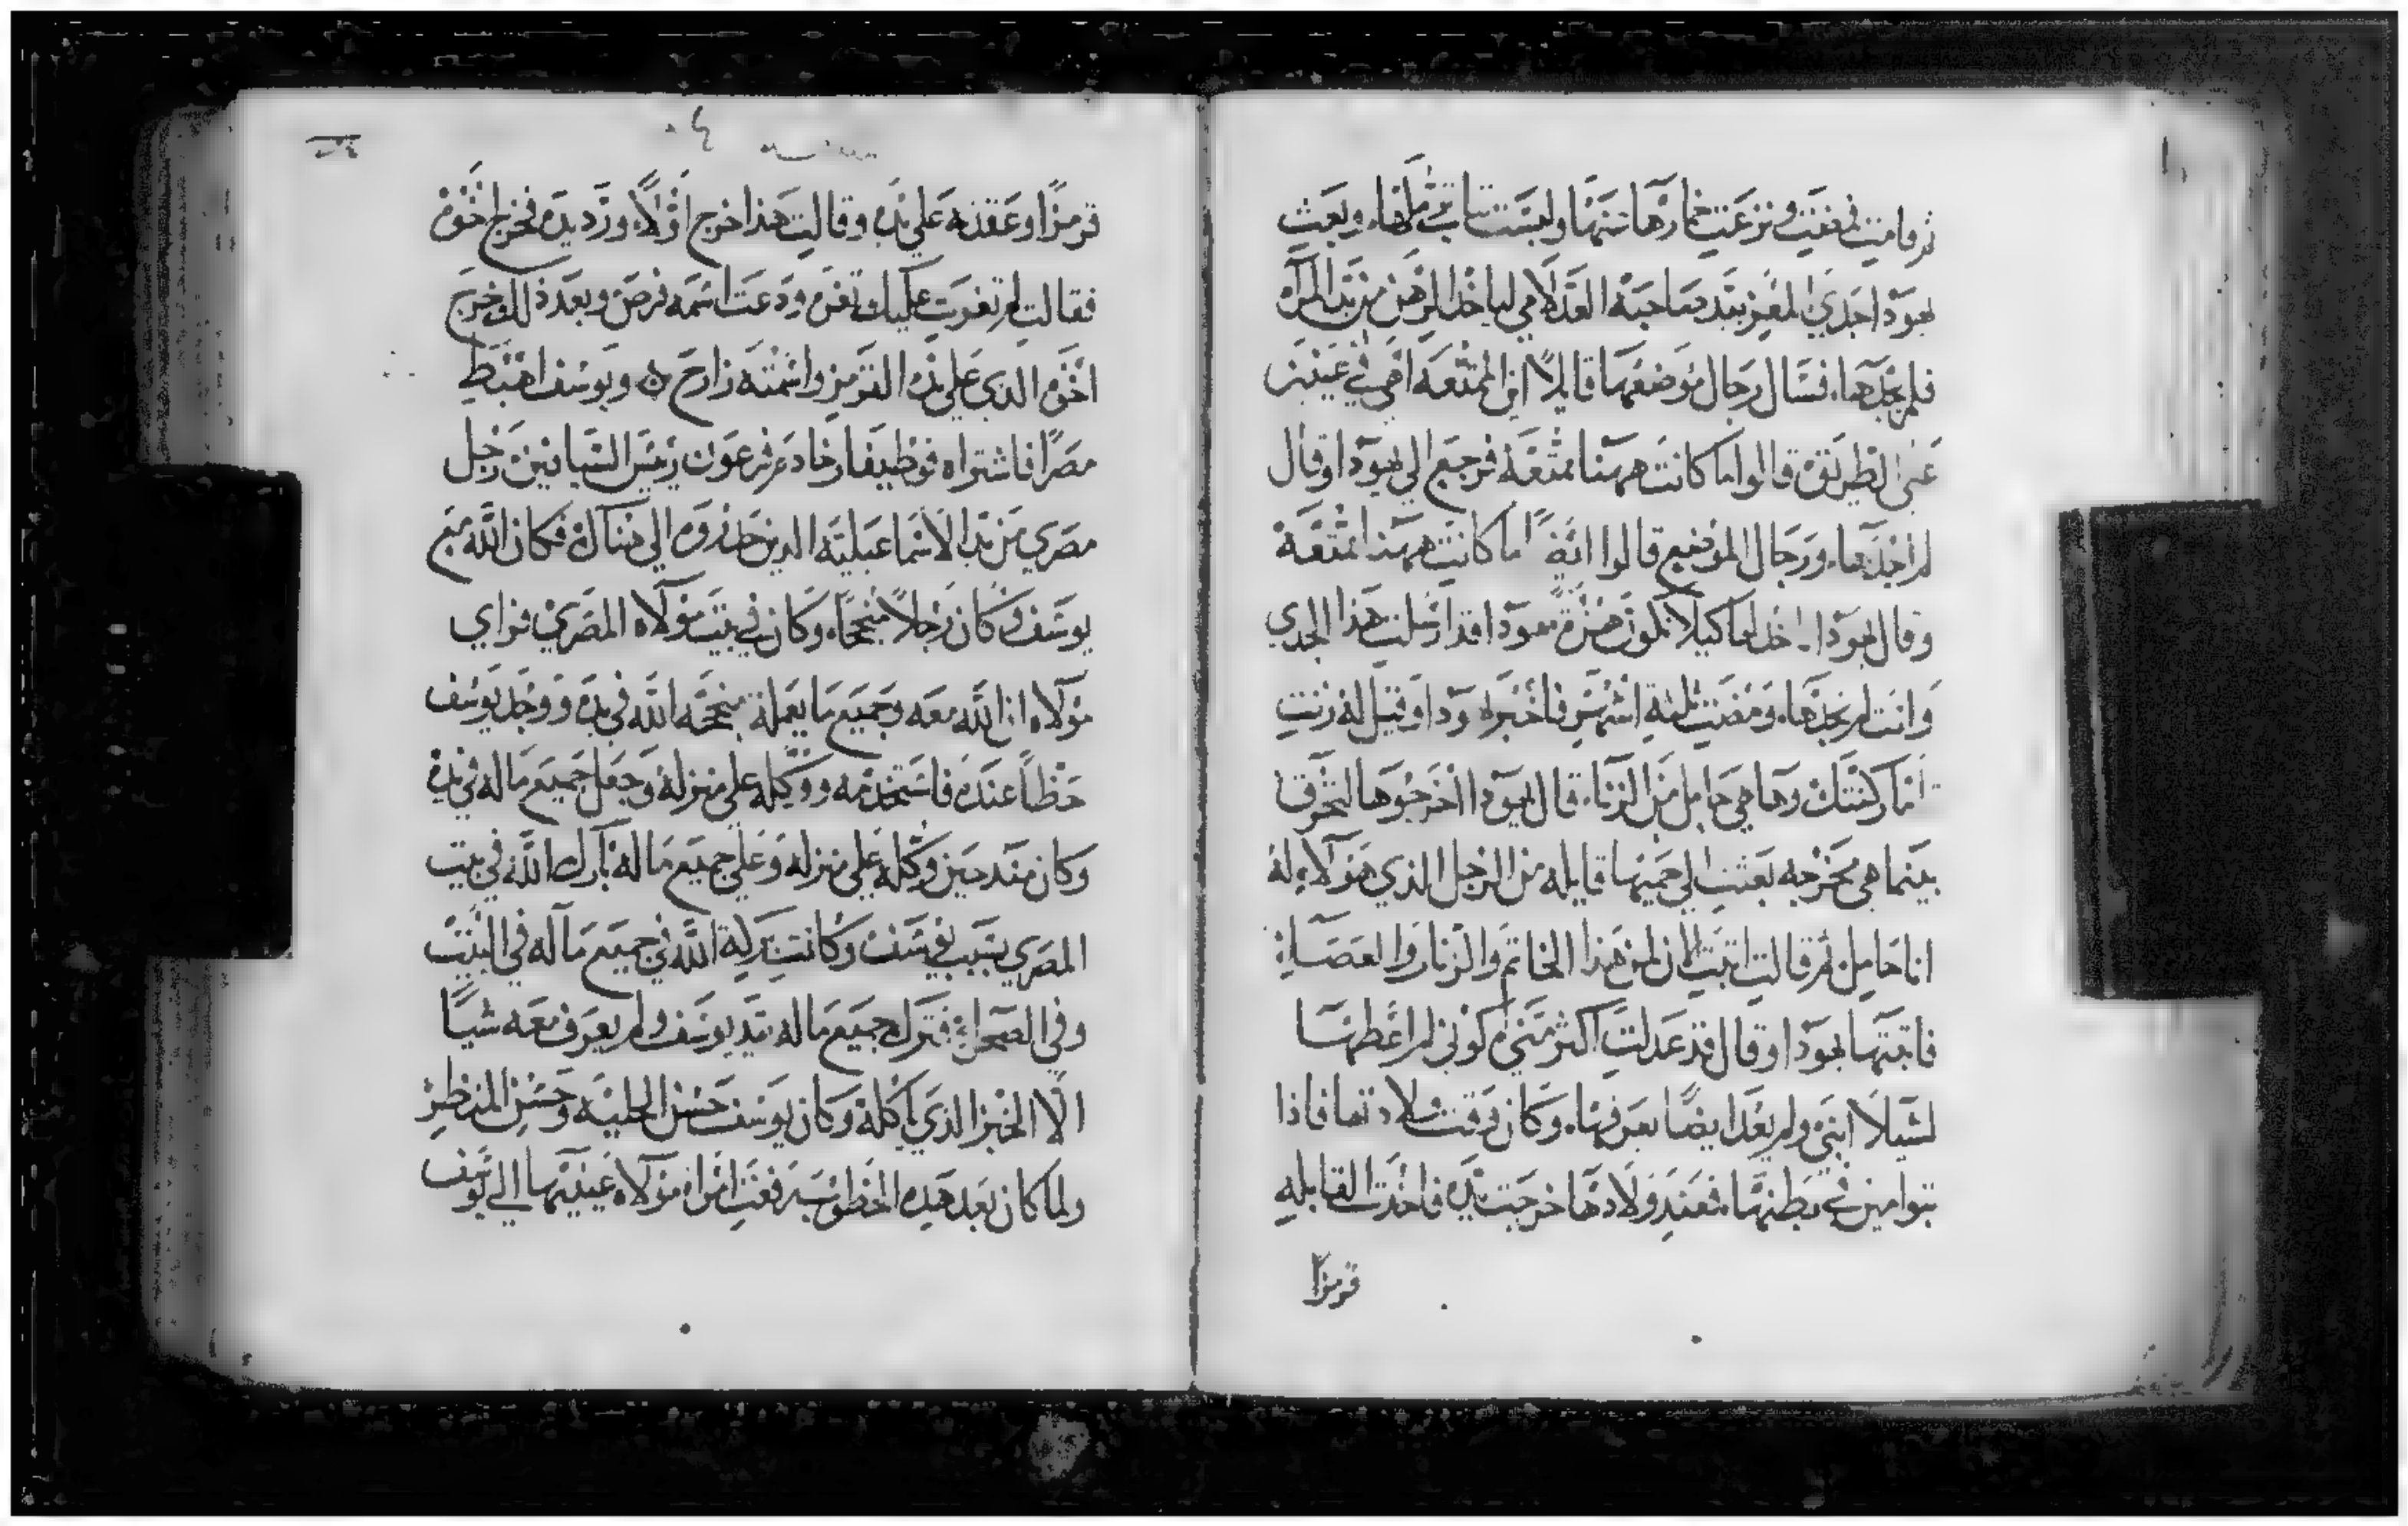 ثم قامت فمضت ونزعت خمارها عنها ولبست ثياب ترملها، وبعث
يهودا جدي المعز بيد صاحبه العدلامي لياخذ الرهن من يد المراه
فلم يجدها، فسال رجال موضعها قايلاً اين الممتعه اهي في عينين
على الطريق قالوا ما كانت ههنا ممتعة فرجع الي يهودا وقال
لم اجدها، ورجال الموضع قالوا ايضاً ما كانت ههنا ممتعة
وقال يهودا ـ تاخذ لها كيلا نكون هزؤة هودا قد ارسلت هذا الجدي
وانت لم تجدها، ومضت ثلثة اشهر فاخبر يهودا وقيل له زنت
ثامار كنتك وها هي حامل من الزنا، قال يهودا اخرجوها لتحرق
بينما هي مخرجه بعثت الي حميها قايله من الرجل الذي هولاء له
انا حامل ثم قالت اثبت لمن هذا الخاتم والزنار والعصاة
فاثبتها يهودا وقال قد عدلت اكثر مني، كوني لم اعطها
لشيلا ابني ولم يعد ايضاً يعرفها، وكان وقت ولادتها فاذا
بتوامين في بطنها، فعند ولادتها خرجت يده فاخذت القابله
قرمزا
قرمزاً وعقدته على يده وقالت هذا خرج اوّلاً، ورد يده فخرج اخوه
فقالت لم تغرت عليك تغره ودعت اسمه فرص وبعد ذلك خرج
اخوه الذي على يده القرمز واسمته زارح ه ويوسف اهبط
مصراً فاشتراه فوطيفار خادم فرعون رييس السيافين رجل
مصري من يد الاسماعيليه الذين احدروه الي هناك فكان الله مع
يوسف وكان رجلاً منجحاً، وكان في بيت مولاه المصري فراي
مولاه ان الله معه وجميع ما يعمله ينجحه الله في يده ووجد يوسف
حظاً عنده فاستخدمه ووكله على منزله وجعل جميع ماله في يده
وكان منذ حين وكله على منزله وعلى جميع ماله بارك الله في بيت
المصري بسبب يوسف وكانت بركة الله في جميع ماله في البيت
وفي الصحراء، فترك جميع ماله بيد يوسف ولم يعرف معه شياً
الا الخبز الذي ياكله وكان يوسف حسن الحليه وحسن المنظر
ولما كان بعد هذه الخطوب رفعت امراة مولاه عينيها الي يوسف